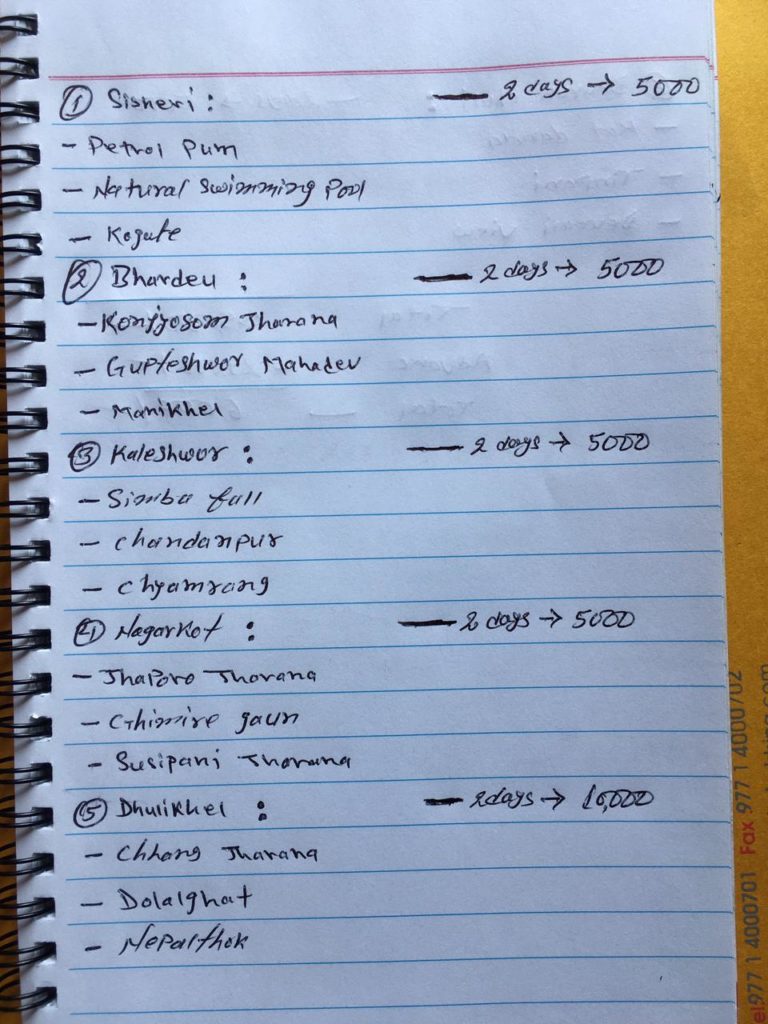 ① Sisneri : — 2 days → 5000
- Petrol Pum
- Natural Swimming Pool
- Kogate
② Bhardeu : — 2 days → 5000
- Konjyosom Jharana
- Gupteshwor Mahadev
- Manikhel
③ Kaleshwor : — 2 days → 5000
- Simba fall
- Chandanpur
- Chyamrang
④ Nagarkot : — 2 days → 5000
- Jhaporo Jharana
- Ghimire gaun
- Susipani Jharana
⑤ Dhulikhel : — 2 days → 10,000
- Chhang Jharana
- Dolalghat
- Nepalthok
Fax 977 1 4000702
el 977 1 4000701